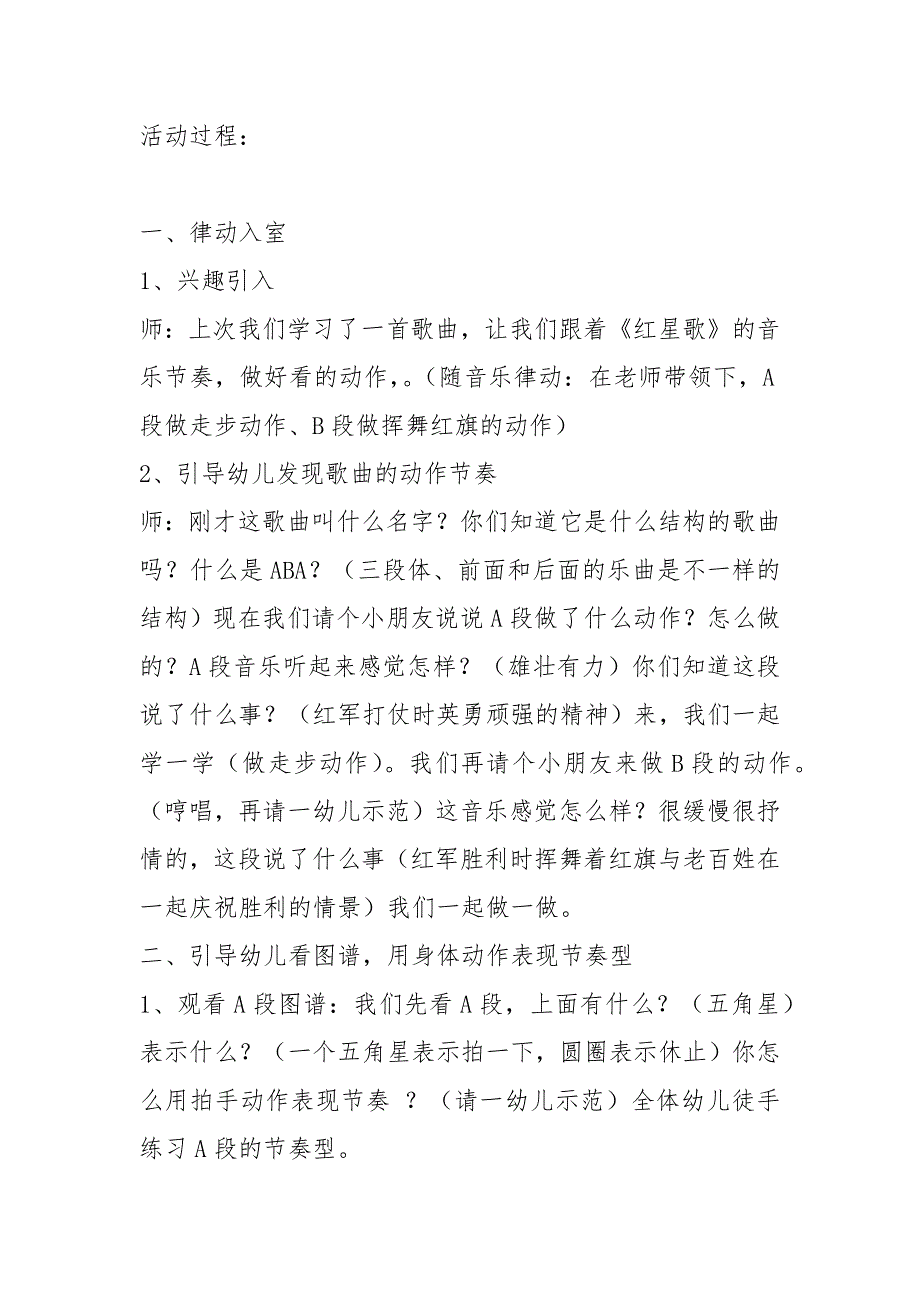 活动过程：
一、律动入室
1、兴趣引入
师：上次我们学习了一首歌曲，让我们跟着《红星歌》的音
乐节奏，做好看的动作，。（随音乐律动：在老师带领下，A
段做走步动作、B 段做挥舞红旗的动作）
2、引导幼儿发现歌曲的动作节奏
师：刚才这歌曲叫什么名字？你们知道它是什么结构的歌曲
吗？什么是 ABA？（三段体、前面和后面的乐曲是不一样的
结构）现在我们请个小朋友说说 A 段做了什么动作？怎么做
的？A 段音乐听起来感觉怎样？（雄壮有力）你们知道这段
说了什么事？（红军打仗时英勇顽强的精神）来，我们一起
学一学（做走步动作）。我们再请个小朋友来做 B 段的动作。
（哼唱，再请一幼儿示范）这音乐感觉怎么样？很缓慢很抒
情的，这段说了什么事（红军胜利时挥舞着红旗与老百姓在
一起庆祝胜利的情景）我们一起做一做。
二、引导幼儿看图谱，用身体动作表现节奏型
1、观看 A 段图谱：我们先看 A 段，上面有什么？（五角星）
表示什么？（一个五角星表示拍一下，圆圈表示休止）你怎
么用拍手动作表现节奏 ？（请一幼儿示范）全体幼儿徒手
练习 A 段的节奏型。